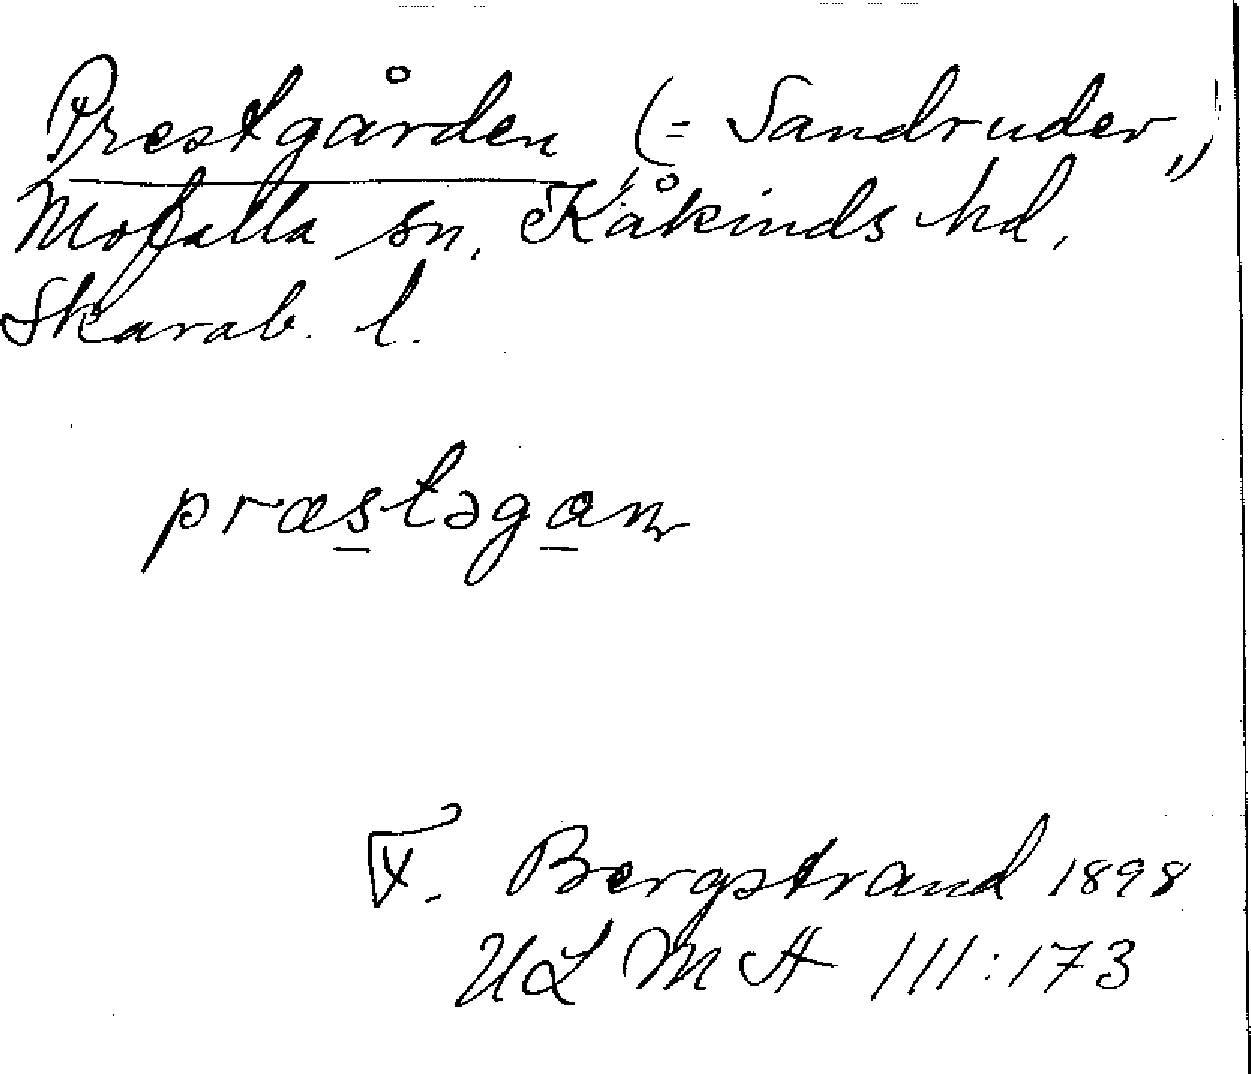 Prestgården (= Sandruder„)
Mofalla sn, Kåkinds hd,
Skarab. l.
præstəgaɳ
F. Bergstrand 1898
ULMA 111:173